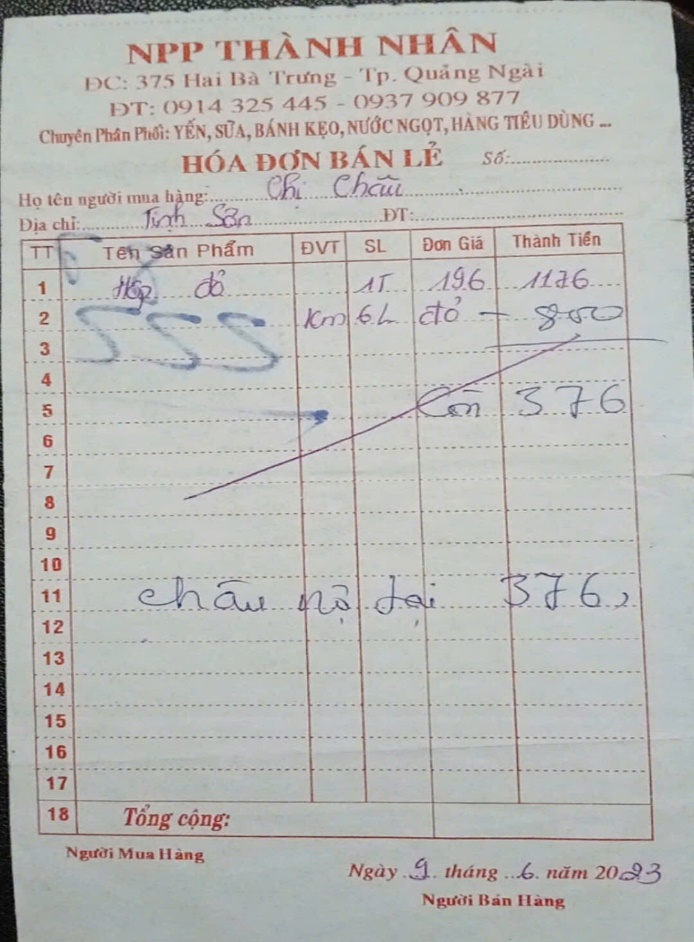 NPP THÀNH NHÂN
ĐC: 375 Hai Bà Trưng - Tp. Quảng Ngãi
ĐT: 0914 325 445 - 0937 909 877
Chuyên Phân Phối: YẾN, SỮA, BÁNH KẸO, NƯỚC NGỌT, HÀNG TIÊU DÙNG ...
HÓA ĐƠN BÁN LẺ Số:
Họ tên người mua hàng: Chị Châu
Địa chỉ: Tịnh Sơn ĐT:
TT Tên Sản Phẩm ĐVT SL Đơn Giá Thành Tiền
1 Hộp đỏ 1T 196 1176
2 SSS Km 6L đỏ - 800
3
4
5 Còn 376
6
7
8
9
10
11 Châu nợ lại 376,
12
13
14
15
16
17
18 Tổng cộng:
Người Mua Hàng
Ngày 9 tháng 6 năm 2023
Người Bán Hàng